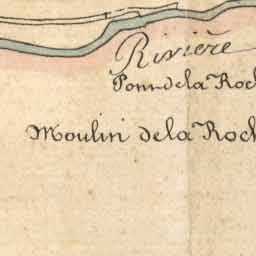 Rivière
Pont de la Roch
Moulin de la Roch